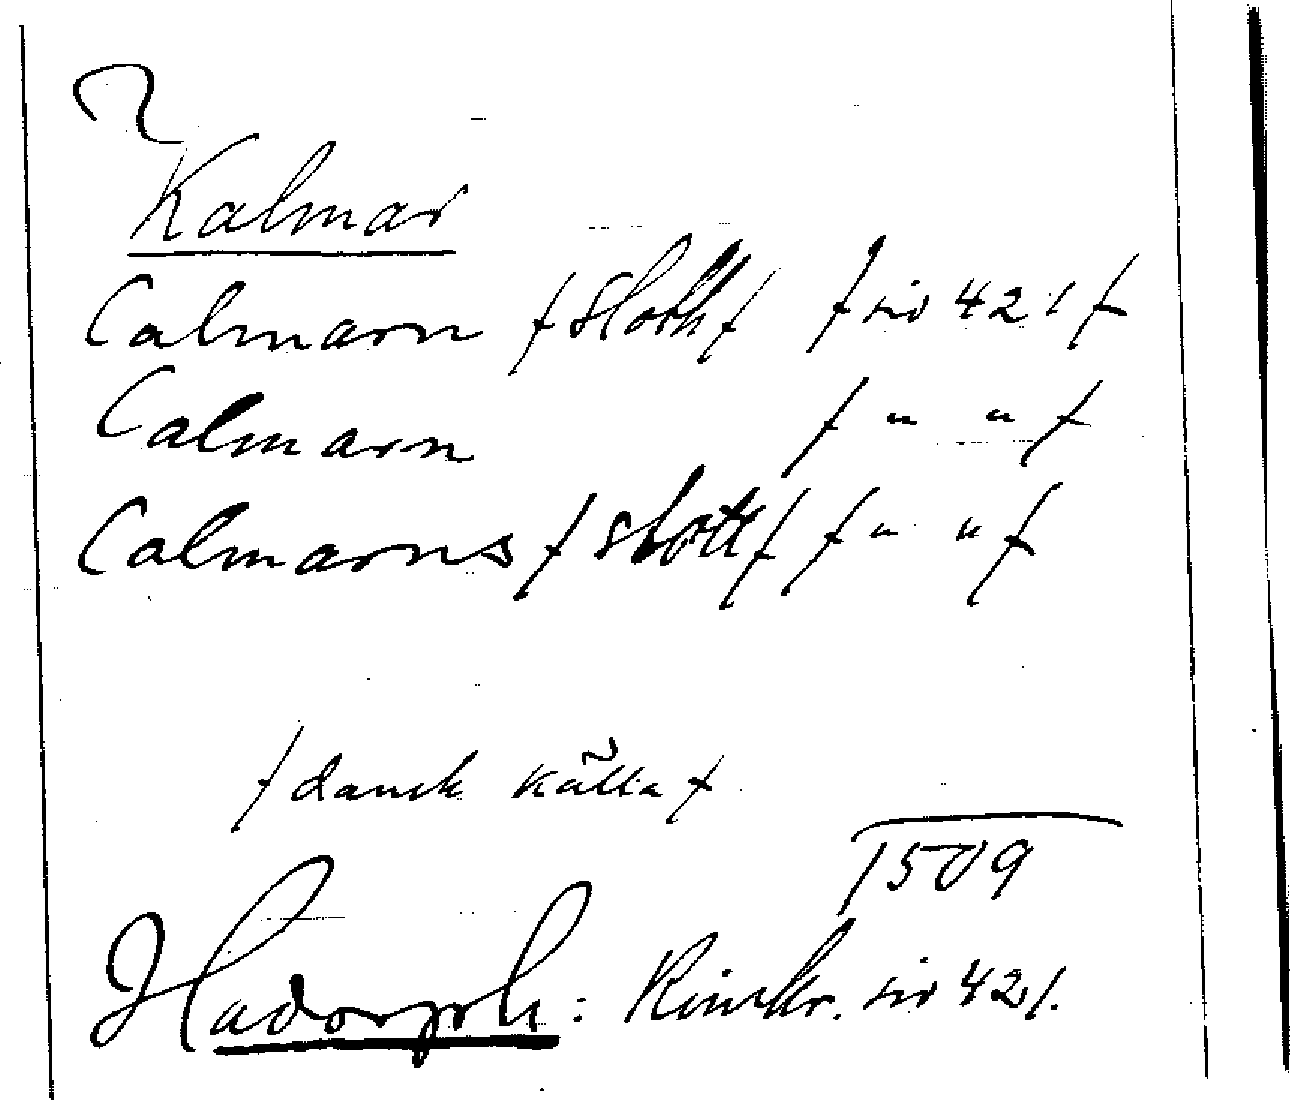 Kalmar
Calmarn /sloth/ /sid 421/
Calmarn / " " /
Calmarns /slott/ / " " /
/dansk källa/
1509
Hadorph: Rimkr. sid 421.